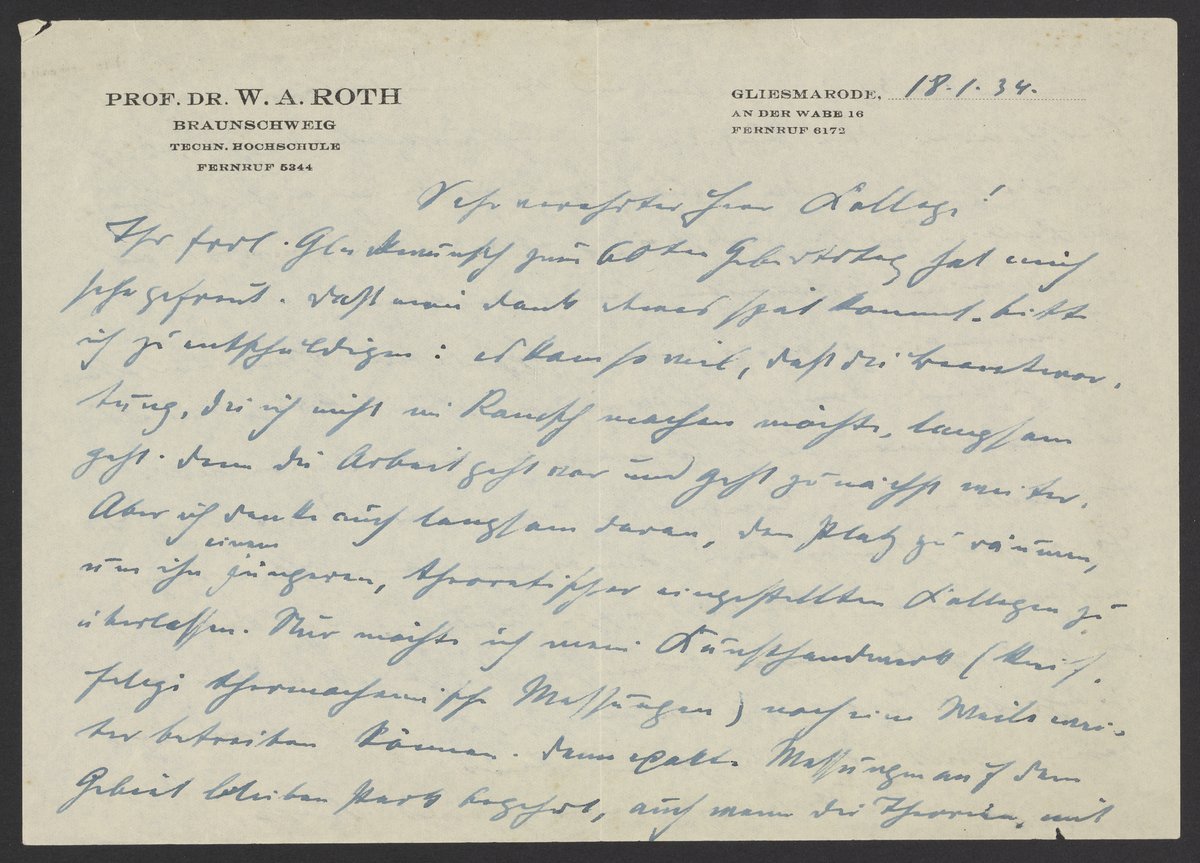 PROF. DR. W. A. ROTH
BRAUNSCHWEIG
TECHN. HOCHSCHULE
FERNRUF 5344
GLIESMARODE, 18.1.34.
AN DER WABE 16
FERNRUF 6172
Sehr verehrter Herr Kollege!
Ihr frdl. Glückwunsch zum 60ten Geburtstag hat mich
sehr gefreut. Daß mein Dank etwas spät kommt, bitte
ich zu entschuldigen: es kam so viel, daß die Beantwor-
tung, die ich nicht im Ramsch machen möchte, langsam
geht. Denn die Arbeit geht vor und geht zunächst weiter.
Aber ich denke auch langsam daran, den Platz zu räumen,
um ihn einem jüngeren, theoretischer eingestellten Kollegen zu
überlassen. Nur möchte ich mein Kunsthandwerk (knif-
felige thermochemische Messungen) noch eine Weile wei-
ter betreiben können. Denn exakte Messungen auf dem
Gebiet bleiben stark begehrt, auch wenn die Theorien, mit